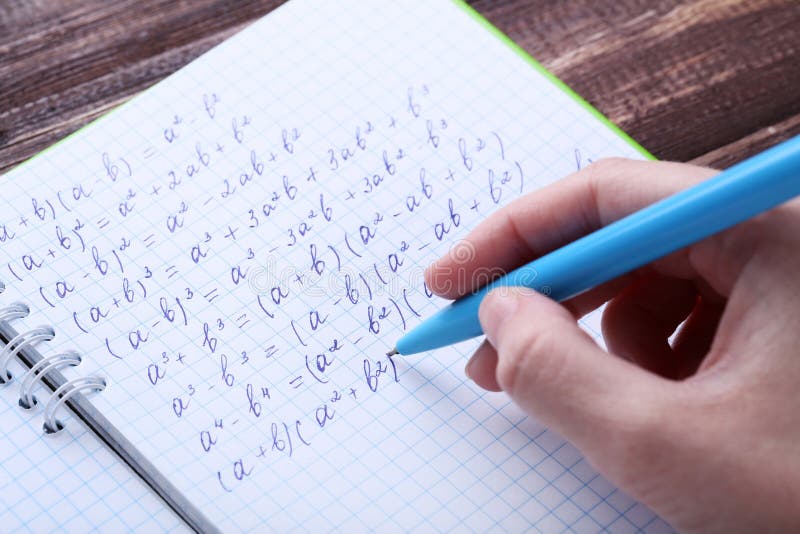 a+b)(a-b) = a² - b²
(a+b)² = a² + 2ab + b²
(a-b)² = a² - 2ab + b²
(a+b)³ = a³ + 3a²b + 3ab² + b³
(a-b)³ = a³ - 3a²b + 3ab² - b³
a³ + b³ = (a+b)(a² - ab + b²)
a³ - b³ = (a-b)(a² - ab + b²)
a⁴ - b⁴ = (a² - b²)(
(a+b)(a² + b²)